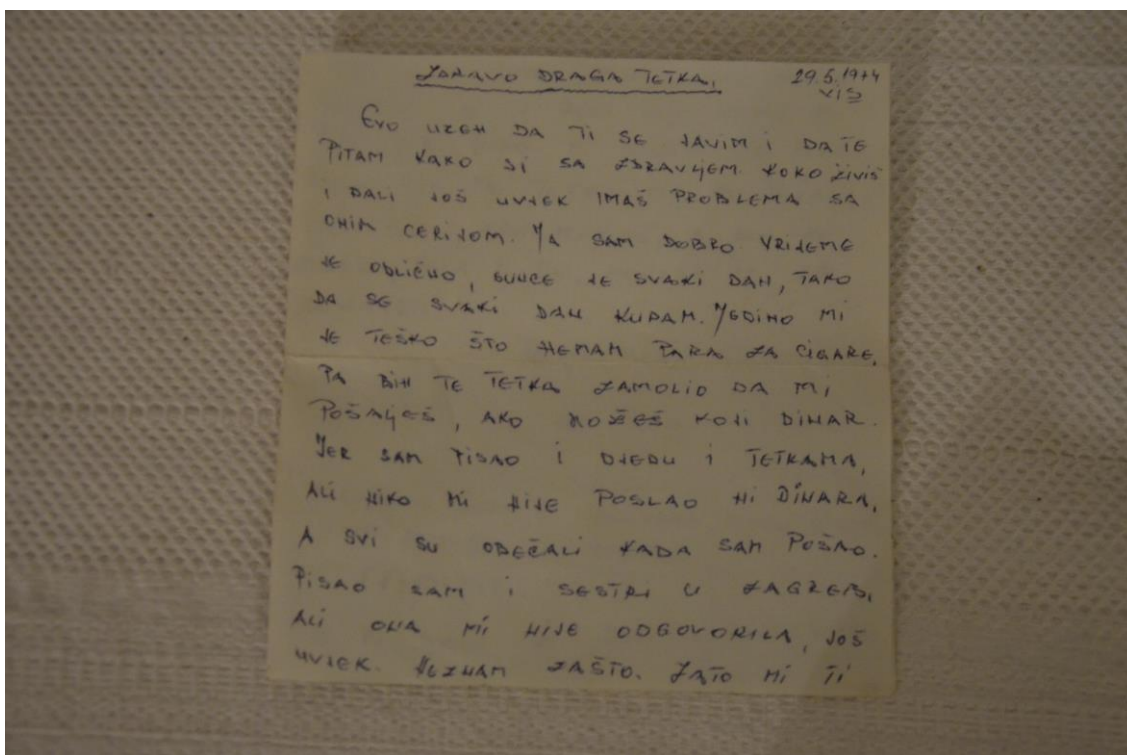 ZDRAVO DRAGA TETKA, 29.5.1974
VIS
EVO UZEH DA TI SE JAVIM I DA TE
PITAM KAKO SI SA ZDRAVLJEM. KOKO ŽIVIŠ
I DALI JOŠ UVJEK IMAŠ PROBLEMA SA
ONIM JA SAM DOBRO VRIJEME
JE ODLIČNO, SUNCE JE SVAKI DAN, TAKO
DA SE SVAKI DAN KUPAM. JEDINO MI
JE TEŠKO ŠTO NEMAM PARA ZA CIGARE,
PA BIH TE TETKA ZAMOLIO DA MI
POŠALJEŠ, AKO MOŽEŠ KOJI DINAR.
JER SAM PISAO I DJEDU I TETKAMA,
ALI NIKO MI NIJE POSLAO NI DINARA,
A SVI SU OBEČALI KADA SAM POŠAO.
PISAO SAM I SESTRI U ZAGREB,
ALI ONA MI NIJE ODGOVORILA, JOŠ
UVJEK. NEZNAM ZAŠTO. ZATO MI TI